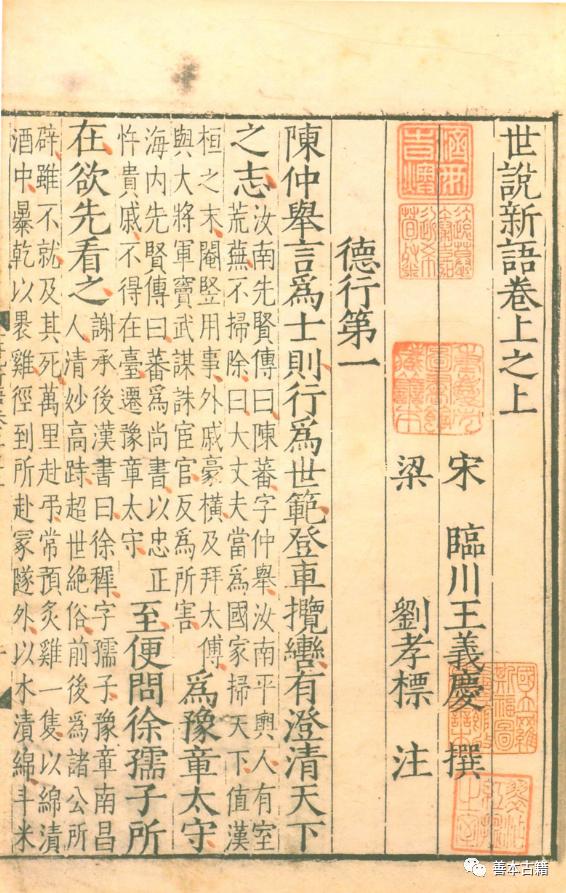 世說新語卷上之上
宋 臨川王義慶 撰
梁 劉孝標 注
德行第一
陳仲舉言爲士則行爲世範登車攬轡有澄清天下
之志
汝南先賢傳曰陳蕃字仲舉汝南平輿人有室
荒蕪不掃除曰大丈夫當爲國家掃天下值漢
桓之末閹豎用事外戚豪橫及拜太傅
與大將軍竇武謀誅宦官反爲所害
爲豫章太守
海内先賢傳曰蕃爲尚書以忠正
忤貴戚不得在臺遷豫章太守
至便問徐孺子所
在欲先看之
謝承後漢書曰徐穉字孺子豫章南昌
人清妙高跱超世絶俗前後爲諸公所
辟雖不就及其死萬里赴弔常預炙雞一隻以綿漬
酒中暴乾以裹雞徑到所赴冢隧外以水漬綿斗米
善本古籍